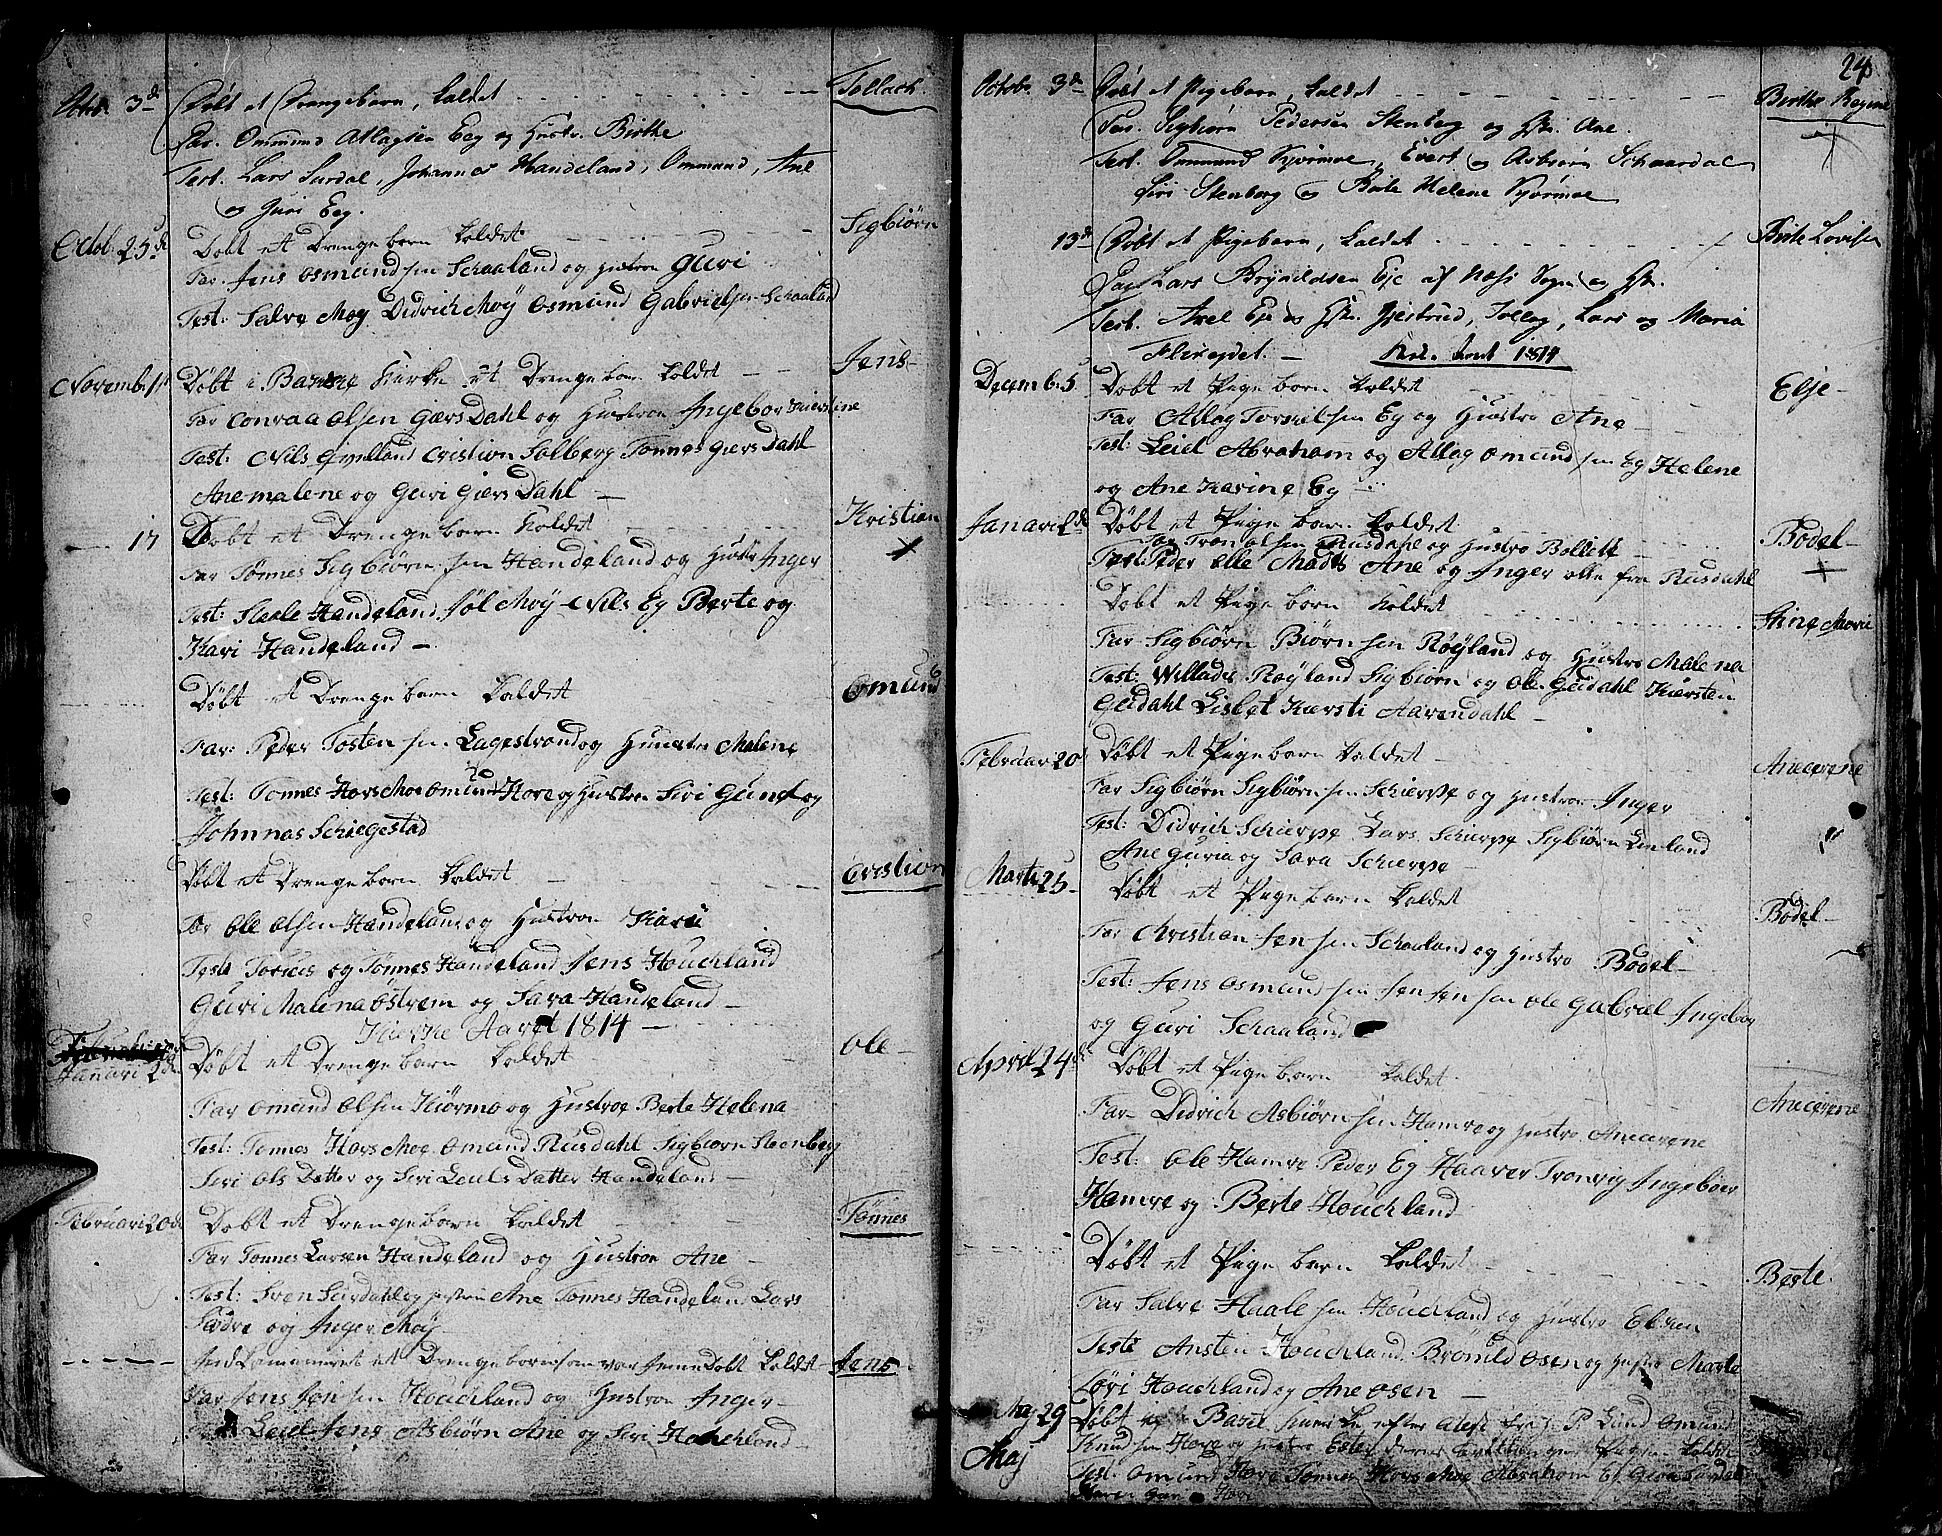 Octob. 3d Døbt et Drengebarn, kaldet Tollach.
Far. Ommund Atlagsen Eeg og Hustr. Birthe
Test. Lars Surdal, Johannes Handeland, Ommund, Ane
og Guri Eeg.
Octob. 25d Døbt et Drenge barn kaldet Sigbiørn
Far Jens Osmundsen Schaaland og Hustroe Guri
Test: Salve Moy Didrich Moÿ Osmund Gabrielsen Schaaland
Novemb: 1 Døbt i Kirke et Drenge barn kaldet Jens
Far Conraa Olsen Giærs Dahl og Hustroe Ingebor Kierstine
Test: Nils Cristion Solberg Tønnes Giærs Dahl
Anemalene og Guri Giærs Dahl
17 Døbt et Drenge barn kaldet Kristian
Far Tønnes Sigbiørnsen Handeland og Hustr Inger
Test: Handeland Moÿ Nils Eg Berte og
Kari Handeland
Døbt et Drenge barn kaldet Osmund
Far: Peder Tostensen Lagestrand og Hustro Malene
Test: Tønnes Hors Moe Omund Hove og Hustroe Siri og
Johnnas Schiegestad
Døbt et Drenge barn kaldet Cristion
Far Ole Olsen Handeland og Hustroe Kari
Test og Tønnes Handeland Jens Houchland
Guri Malena Østrem og Sara Handeland
Aaret 1814
Januari 2de Døbt et Drenge barn kaldet Ole
Far Omund Olsen Kiørmo og Hustroe Berte Helena
Test: Tonnes Hors Moe Omund Rusdahl Sigbiørn Steenberg
Siri Ols Datter og Siri Leuls Datter Handeland
Februari 20d Døbt et Drenge barn kaldet Tønnes
Far Tønnes Larsen Handeland og Hustroe Ane
Test: Sven Surdahl og Ane Tønnes Handeland Lars
og Inger Moÿ
et Drenge barn som var Døbt kaldet Jens
Far Jens Jensen Houchland og Hustroe Inger
Leiel Jens Asbiørn Ane og Siri Houchland
24
Octobr. 3de Døbt et Pigebarn, kaldet Birthe Regine
Far. Sigbiørn Pedersen Stenberg og Hr. Ane.
Test. Ommund Kjørmoe, Evert og Asbiørn Schaardal
Siri Stenberg og Birte Helene Kjørmoe
13d Døbt et Pigebarn, kaldet Birte Lovise
Far Lars Brynildsen Eje af Næss Sogn og Hr.
Test. Axel Eje og Hr. Gjertrud, Tollag, Lars og Maria
Flikejdet. 1814
Decemb: 5 Døbt et Pige barn kaldet Elje
Far Atlag Torkilsen Eg og Hustro Ane
Test: Leiel Abraham og Atlag Omundsen Eg Helene
og Ane Karine Eg
Januari 2de Døbt et Pige barn kaldet Bodel
Far Tron Olsen Rusdahl og Hustro Bollett
Test: Peder Olle Mads Ane og Inger alle fra Rusdahl
Døbt et Pige barn kaldet Stine Marie
Far Sigbiørn Biørnsen Røÿland og Hustro Malena
Test: Willads Røÿland Sigbiørn og Ole Gudahl Kiersten
Gudahl Lisbet Kiersti Aarendahl
Februar 20d Døbt et Pige barn kaldet Anecerene
Far Sigbiørn Sigbiørnsen Schierpe og Hustroe Inger
Test: Didrich Schierpe Lars Schierpe Sigbiørn Lieland
Ane Guria og Sara Schierpe
Marti 25 Døbt et Pige barn kaldet Bodel
Far Christian Jensen Schaaland og Hustro Bodel
Test: Jens Osmundsen Jens Jensen Ole Gabriel Ingebor
og Guri Schaaland
April 24de Døbt et Pige barn kaldet Anecerene
Far Didrich Asbiørnsen Hamre og Hustro Anecerene
Test: Ole Hamre Peder Eg Haaver Tronvig Ingeboer
Hamre og Berte Houchland
Døbt et Pige barn kaldet Berte
Far Salve Haalesen Houchland og Hustro Elsen
Teste Ansten Houchland Brønild Osen og Hustro Marte
Houchland og Ane Osen
Maj 29 Døbt efter P Lund Omund
Maj Knudsen Hove og Hustro Ester Pige kaldet
Test: Omund Hove Tønnes Hors Moe Abraham
Hove